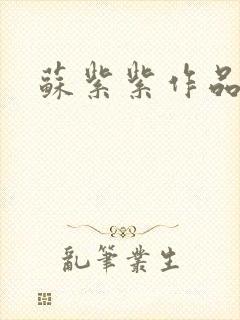 蘇紫紫作品
亂筆業生